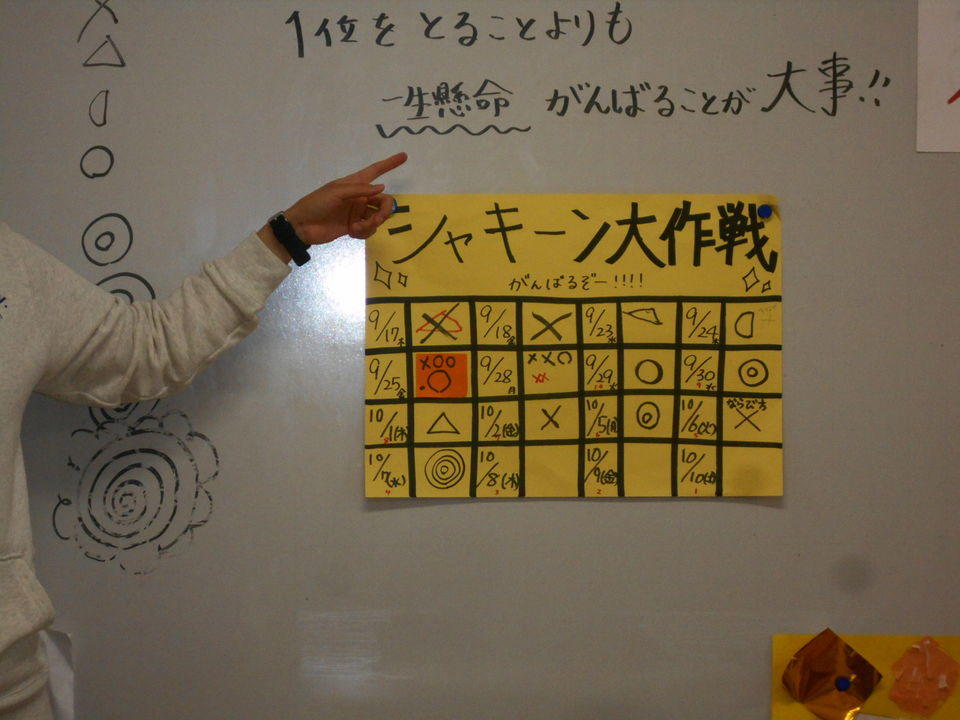 1位をとることよりも
一生懸命 がんばることが大事!!
シャキーン大作戦
がんばるぞー!!!!
9/17木 9/18金 9/23水 9/24木
9/25金 9/28月 9/29火 9/30水
10/1(木) 10/2(金) 10/5(月) 10/6(火) ならび方
10/7(水) 10/8(木) 10/9(金) 10/10(土)